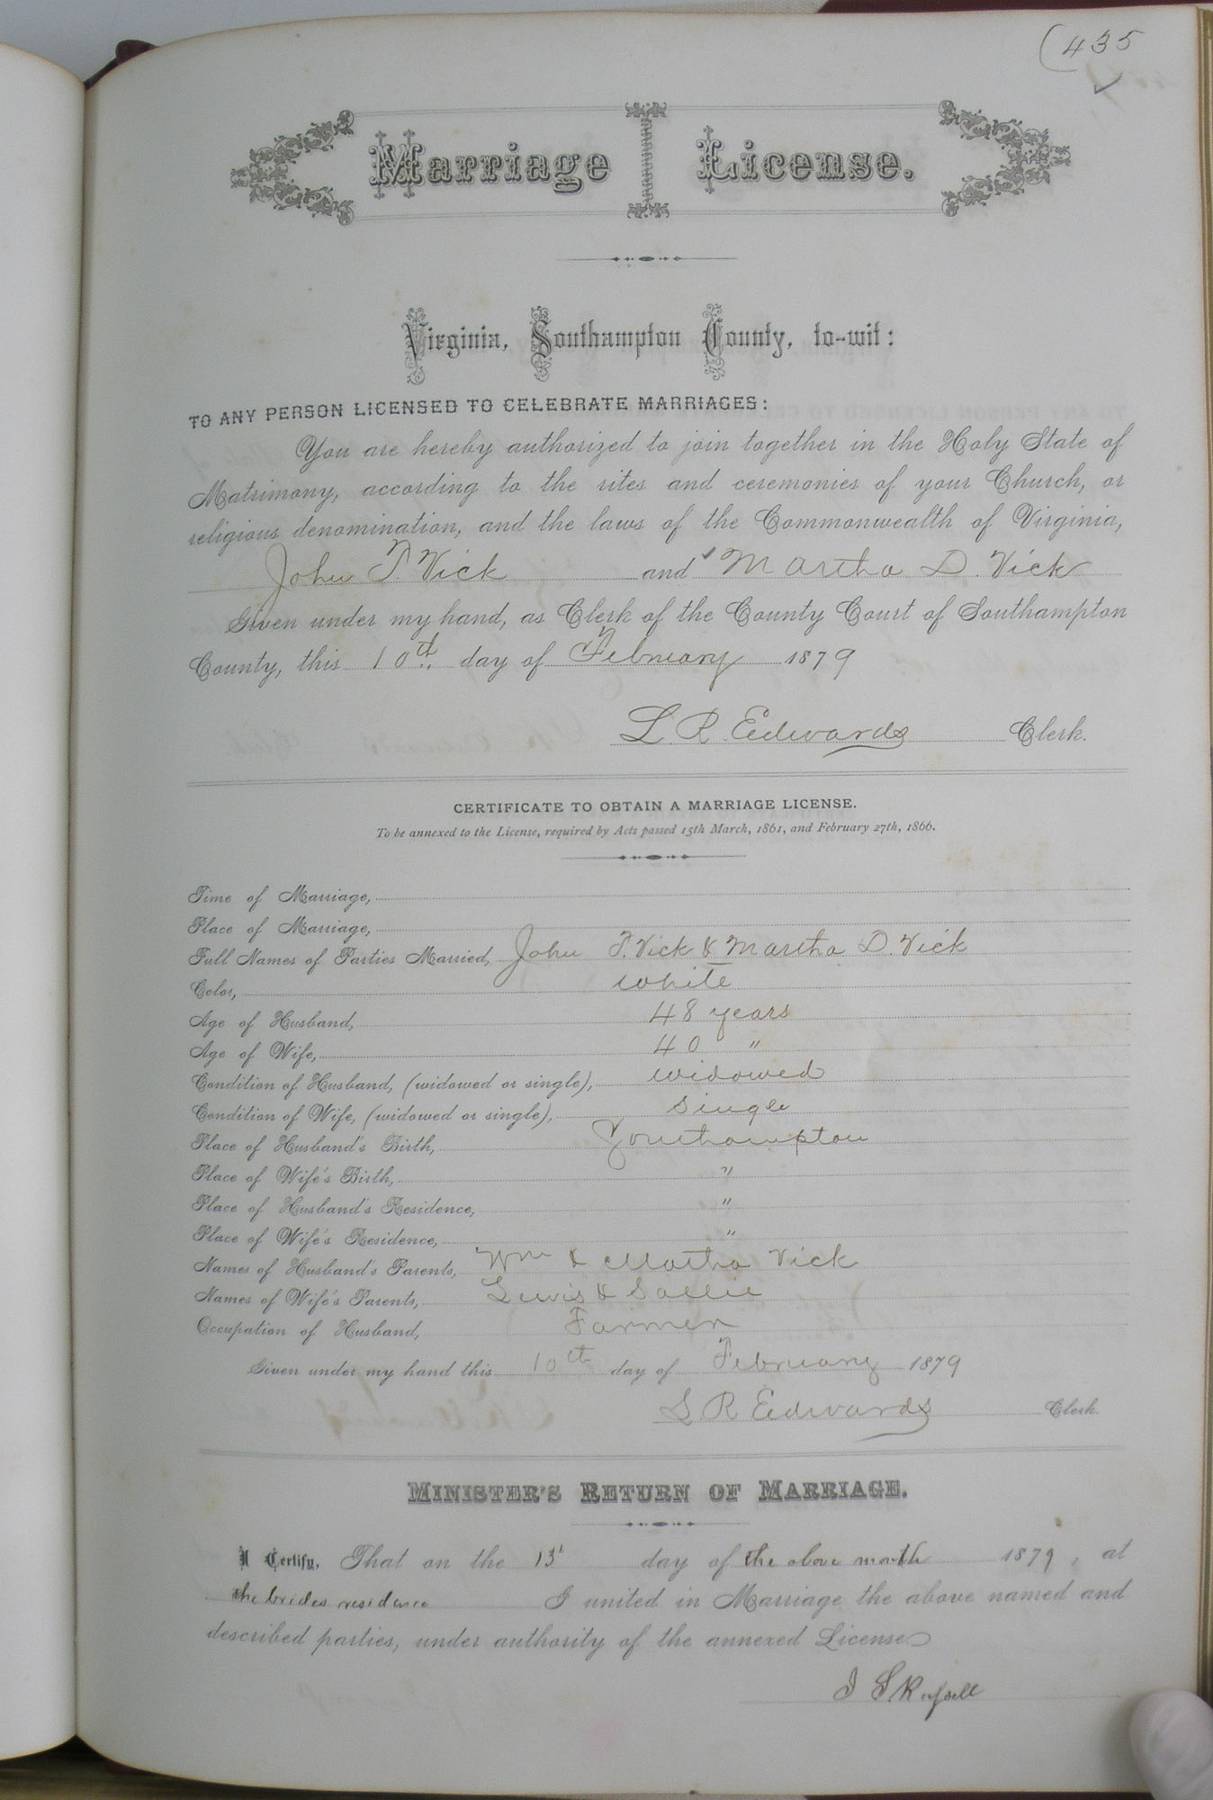 (435
Marriage License.
Virginia, Southampton County, to-wit:
TO ANY PERSON LICENSED TO CELEBRATE MARRIAGES:
You are hereby authorized to join together in the Holy State of
Matrimony, according to the rites and ceremonies of your Church, or
religious denomination, and the laws of the Commonwealth of Virginia,
John T. Vick and Martha D. Vick
Given under my hand, as Clerk of the County Court of Southampton
County, this 10th. day of February 1879
L. R. Edwards Clerk.
CERTIFICATE TO OBTAIN A MARRIAGE LICENSE.
To be annexed to the License, required by Acts passed 15th March, 1861, and February 27th, 1866.
Time of Marriage,
Place of Marriage,
Full Names of Parties Married, John T. Vick & Martha D. Vick
Color, White
Age of Husband, 48 years
Age of Wife, 40 "
Condition of Husband, (widowed or single), Widowed
Condition of Wife, (widowed or single), Single
Place of Husband's Birth, Southampton
Place of Wife's Birth, "
Place of Husband's Residence, "
Place of Wife's Residence, "
Names of Husband's Parents, Wm & Martha Vick
Names of Wife's Parents, Lewis & Sallie
Occupation of Husband, Farmer
Given under my hand this 10th day of February 1879
L R Edwards Clerk.
MINISTER'S RETURN OF MARRIAGE.
I Certify, That on the 13th day of the above month 1879, at
the brides residence I united in Marriage the above named and
described parties, under authority of the annexed License